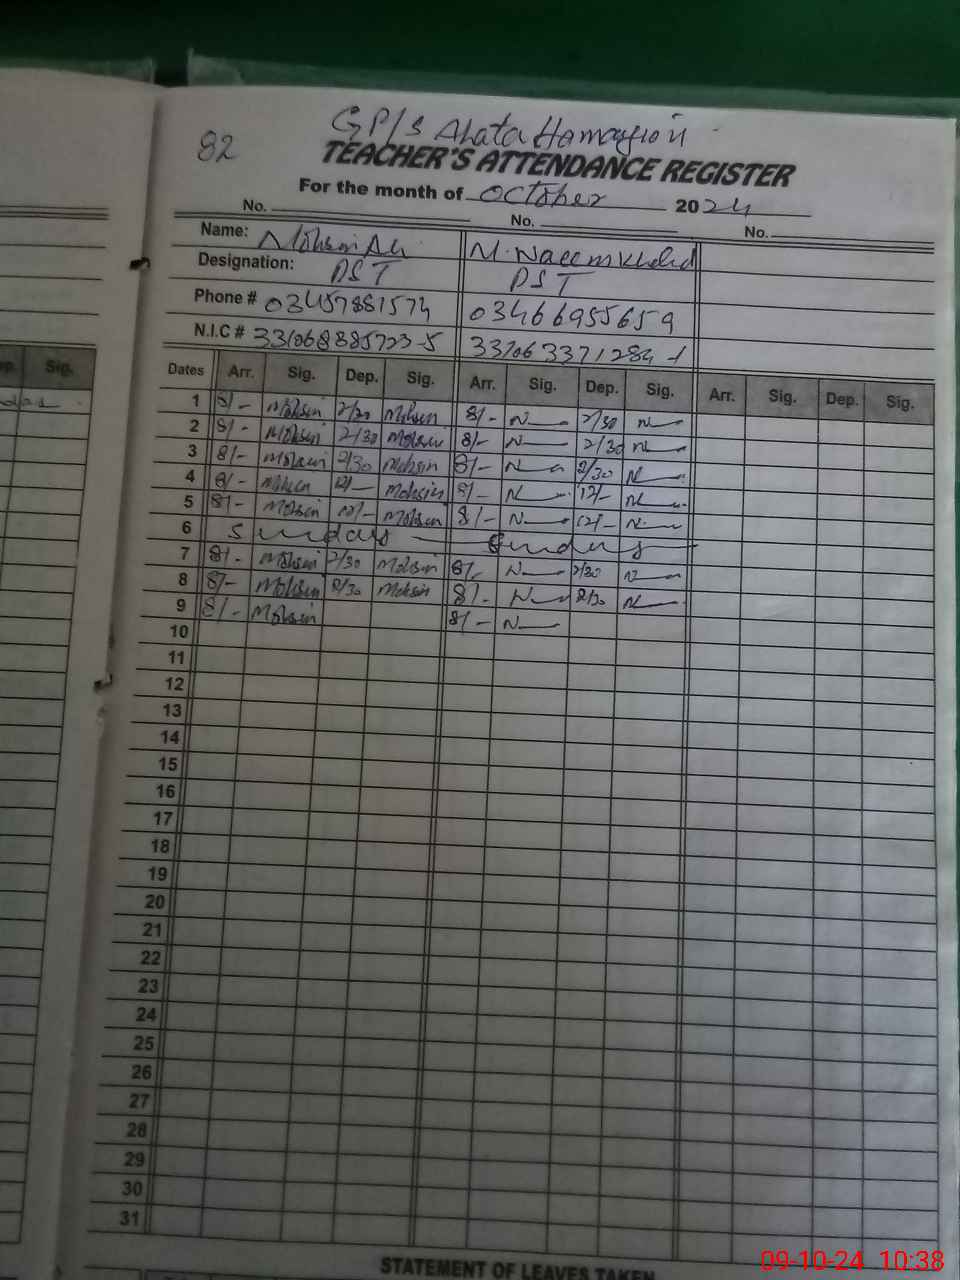 82
GP/S Ahata Hamayion
TEACHER'S ATTENDANCE REGISTER
For the month of October 2024
No. No. No.
Name: Mohsin Ali M. Naeem Khalid
Designation: PST PST
Phone # 03457881574 03466955659
N.I.C # 3310688857235-5 3310633712 84-1
Dates Arr. Sig. Dep. Sig. Arr. Sig. Dep. Sig. Arr. Sig. Dep. Sig.
Sig.
1 8/- Mohsin 2/30 Mohsin 8/- N 2/30 N
2 8/- Mohsin 2/30 Mohsin 8/- N 2/30 N
3 8/- Mohsin 2/30 Mohsin 8/- N 2/30 N
4 8/- Mohsin 12/- Mohsin 8/- N 12/- N
5 8/- Mohsin 12/- Mohsin 8/- N 12/- N
6 Sunday Sunday
7 8/- Mohsin 2/30 Mohsin 8/- N 2/30 N
8 8/- Mohsin 2/30 Mohsin 8/- N 2/30 N
9 8/- Mohsin 8/- N
10
11
12
13
14
15
16
17
18
19
20
21
22
23
24
25
26
27
28
29
30
31
STATEMENT OF LEAVES TAKEN
09-10-24 10:38